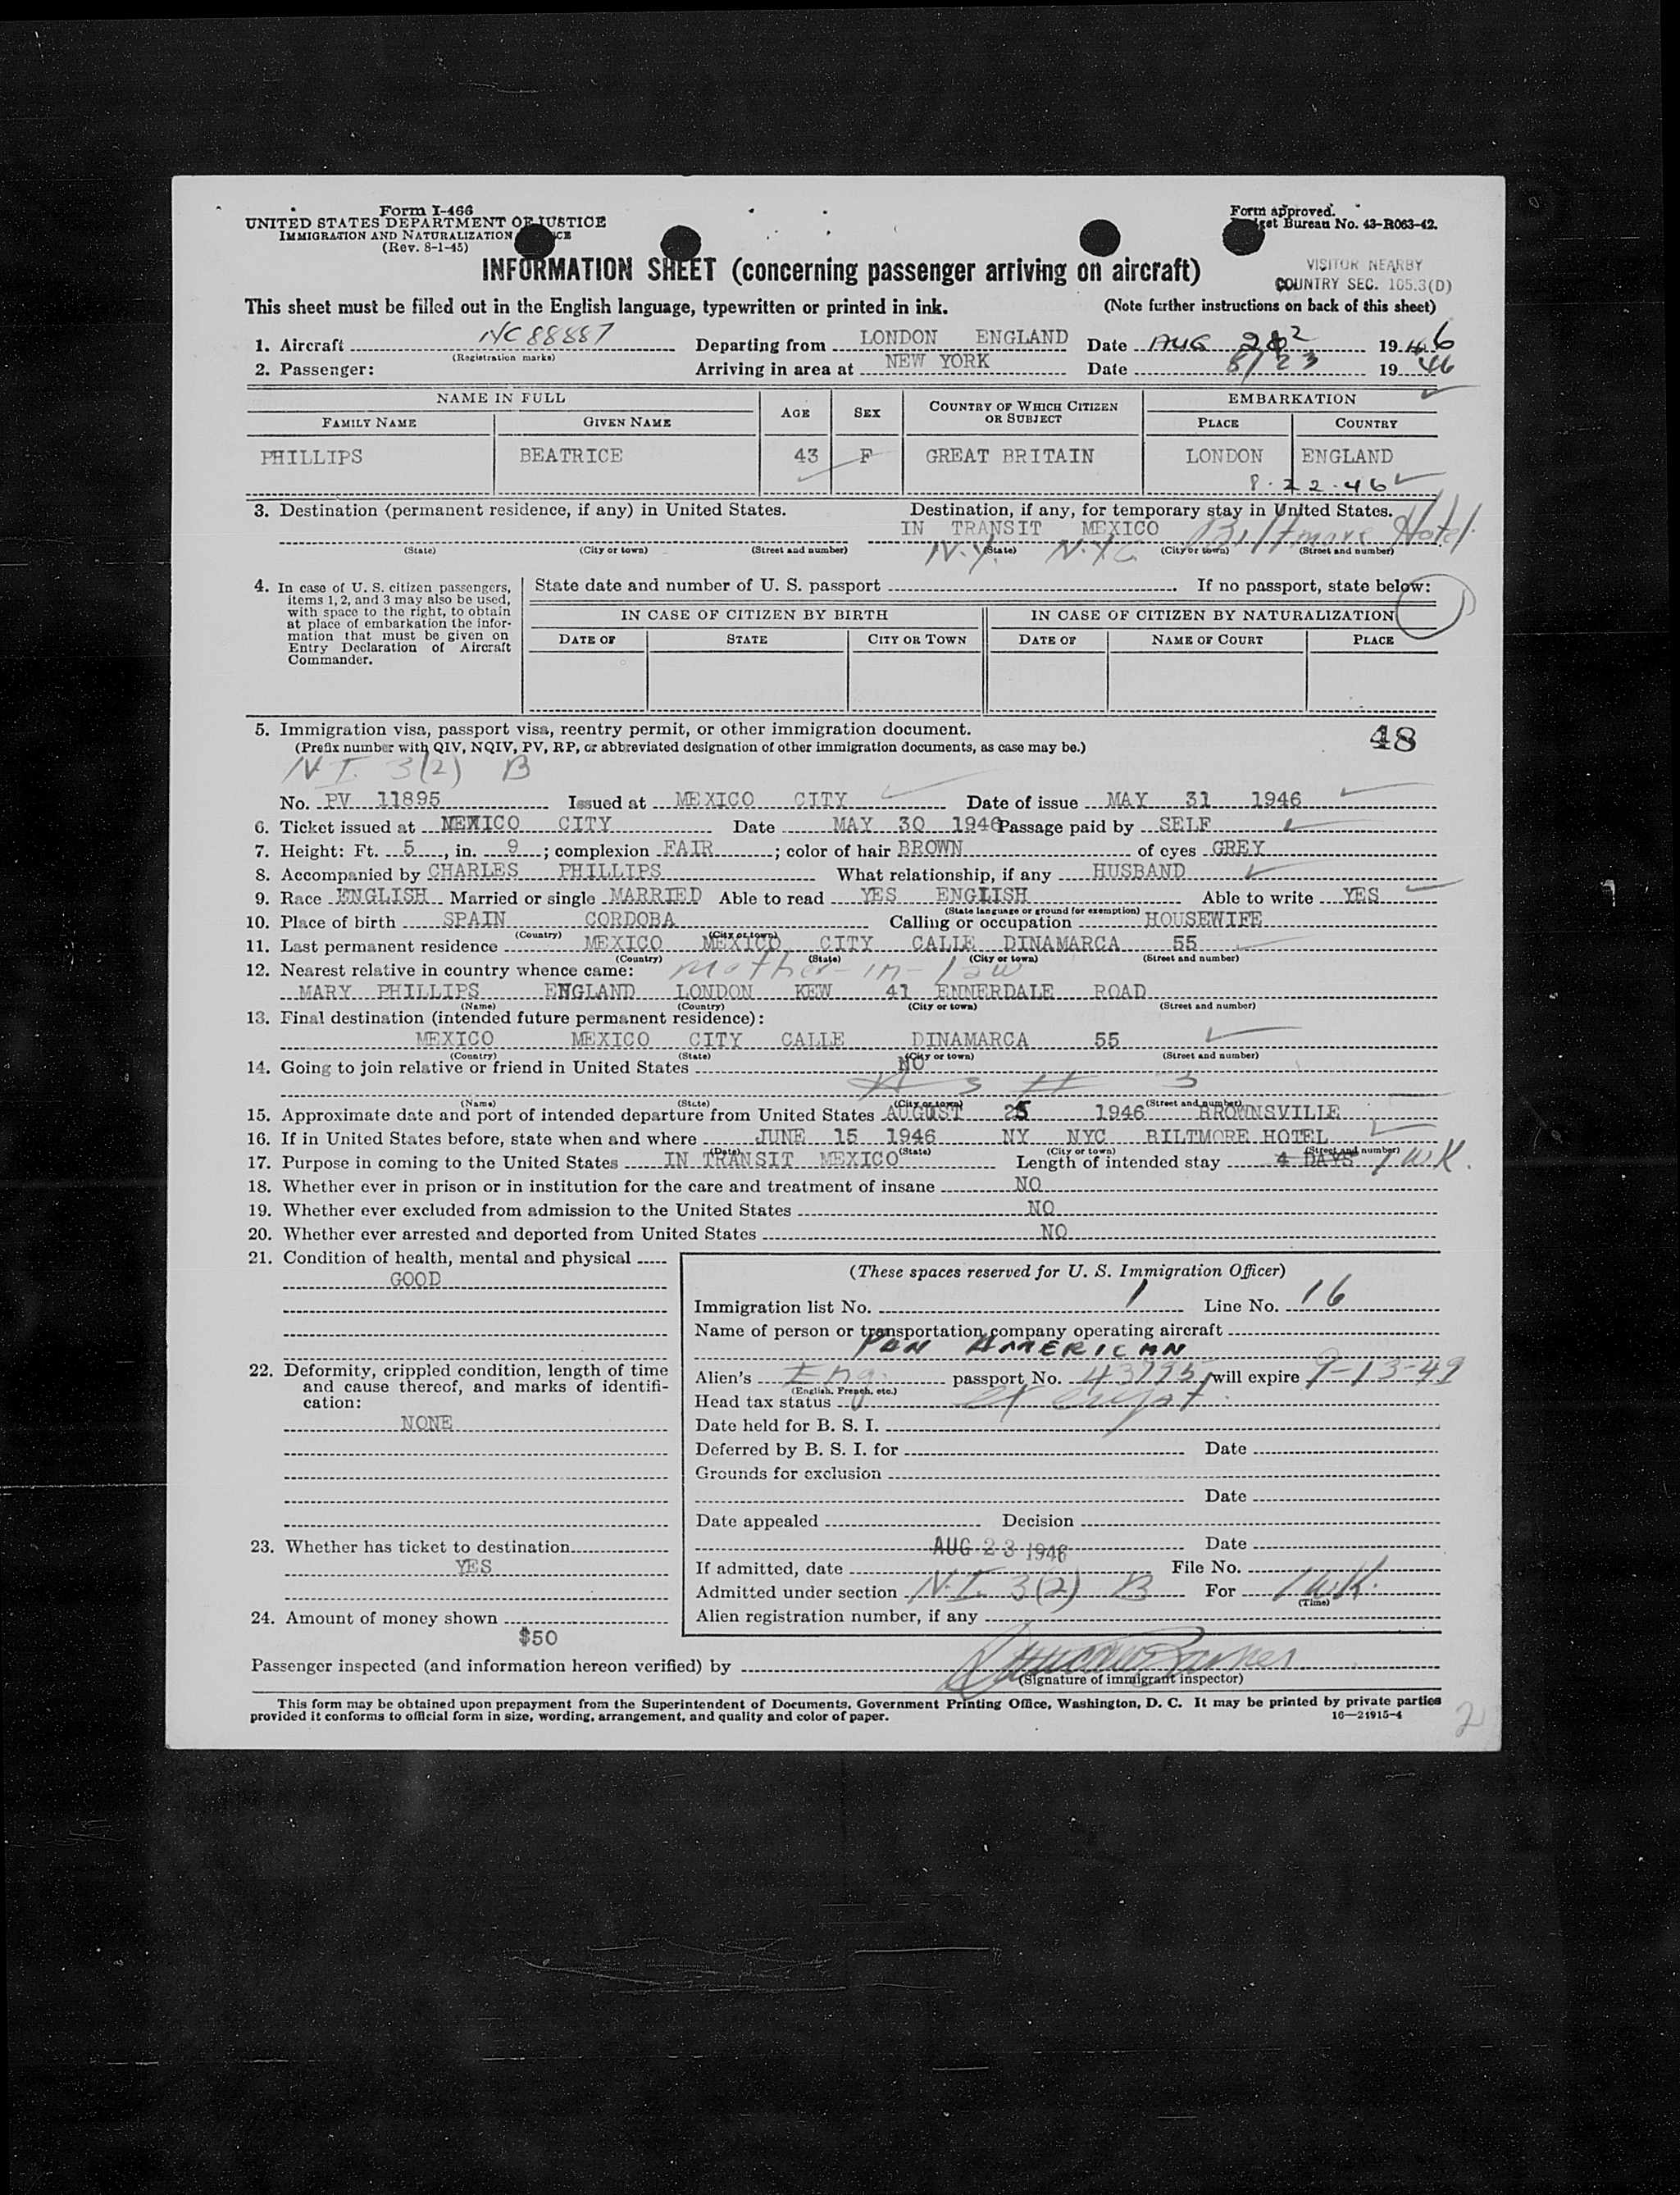 Form I-466
UNITED STATES DEPARTMENT OF JUSTICE
IMMIGRATION AND NATURALIZATION
(Rev. 8-1-45)
Form approved.
Bureau No. 43-R063-42.
INFORMATION SHEET (concerning passenger arriving on aircraft)
VISITOR NEARBY
COUNTRY SEC. 165.3(D)
This sheet must be filled out in the English language, typewritten or printed in ink. (Note further instructions on back of this sheet)
1. Aircraft NC 88887 Departing from LONDON ENGLAND Date AUG 1946
(Registration marks)
2. Passenger: Arriving in area at NEW YORK Date 8/23 1946
NAME IN FULL AGE SEX COUNTRY OF WHICH CITIZEN OR SUBJECT EMBARKATION
FAMILY NAME GIVEN NAME PLACE COUNTRY
PHILLIPS BEATRICE 43 F GREAT BRITAIN LONDON ENGLAND
8-22-46
3. Destination (permanent residence, if any) in United States. Destination, if any, for temporary stay in United States.
IN TRANSIT MEXICO Biltmore Hotel
N.Y. N.Y.C.
(State) (City or town) (Street and number) (State) (City or town) (Street and number)
4. In case of U. S. citizen passengers, items 1, 2, and 3 may also be used, with space to the right, to obtain at place of embarkation the information that must be given on Entry Declaration of Aircraft Commander.
State date and number of U. S. passport If no passport, state below:
IN CASE OF CITIZEN BY BIRTH IN CASE OF CITIZEN BY NATURALIZATION
DATE OF STATE CITY OR TOWN DATE OF NAME OF COURT PLACE
5. Immigration visa, passport visa, reentry permit, or other immigration document.
48
(Prefix number with QIV, NQIV, PV, RP, or abbreviated designation of other immigration documents, as case may be.)
N.I. 3(2) B
No. PV 11895 Issued at MEXICO CITY Date of issue MAY 31 1946
6. Ticket issued at MEXICO CITY Date MAY 30 1946 Passage paid by SELF
7. Height: Ft. 5, in. 9; complexion FAIR; color of hair BROWN of eyes GREY
8. Accompanied by CHARLES PHILLIPS What relationship, if any HUSBAND
9. Race ENGLISH Married or single MARRIED Able to read YES ENGLISH Able to write YES
(State language or ground for exemption)
10. Place of birth SPAIN CORDOBA Calling or occupation HOUSEWIFE
(Country) (City or town)
11. Last permanent residence MEXICO MEXICO CITY CALLE DINAMARCA 55
(Country) (State) (City or town) (Street and number)
12. Nearest relative in country whence came: mother-in-law
MARY PHILLIPS ENGLAND LONDON KEW 41 ENNERDALE ROAD
(Name) (Country) (City or town) (Street and number)
13. Final destination (intended future permanent residence):
MEXICO MEXICO CITY CALLE DINAMARCA 55
(Country) (State) (City or town) (Street and number)
14. Going to join relative or friend in United States NO
(Name) (State) (City or town) (Street and number)
15. Approximate date and port of intended departure from United States AUGUST 25 1946 BROWNSVILLE
16. If in United States before, state when and where JUNE 15 1946 NY NYC BILTMORE HOTEL
(Date) (State) (City or town) (Street and number)
17. Purpose in coming to the United States IN TRANSIT MEXICO Length of intended stay 4 DAYS 1 WK.
18. Whether ever in prison or in institution for the care and treatment of insane NO
19. Whether ever excluded from admission to the United States NO
20. Whether ever arrested and deported from United States NO
21. Condition of health, mental and physical
GOOD
22. Deformity, crippled condition, length of time and cause thereof, and marks of identification:
NONE
23. Whether has ticket to destination
YES
24. Amount of money shown
$50
(These spaces reserved for U. S. Immigration Officer)
Immigration list No. 1 Line No. 16
Name of person or transportation company operating aircraft
PAN AMERICAN
Alien's Eng. passport No. 43795 will expire 9-13-49
(English, French, etc.)
Head tax status exempt
Date held for B. S. I.
Deferred by B. S. I. for Date
Grounds for exclusion
Date
Date appealed Decision
Date
AUG 23 1946
If admitted, date File No.
Admitted under section N.I. 3(2) B For 1 WK.
(Time)
Alien registration number, if any
Passenger inspected (and information hereon verified) by
(Signature of immigrant inspector)
This form may be obtained upon prepayment from the Superintendent of Documents, Government Printing Office, Washington, D. C. It may be printed by private parties
provided it conforms to official form in size, wording, arrangement, and quality and color of paper. 16—21915-4
2